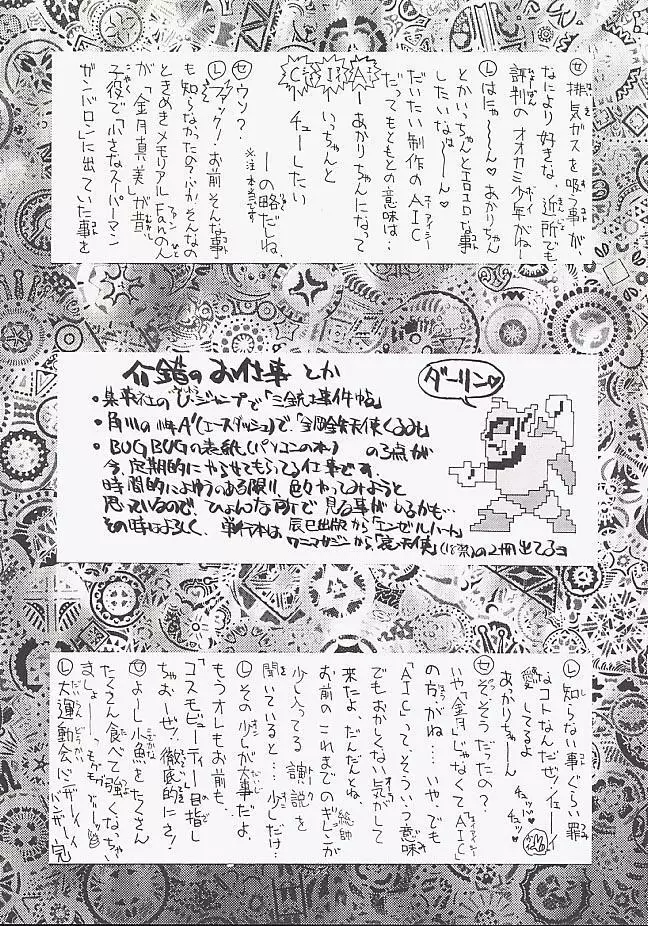 ㋝排気ガスを吸う事が、
なにより好きな、近所でも
評判のオオカミ少年がねー
㋹はにゃ〜〜ん♡あかりちゃん
とかいっちゃんとエロエロな事
したいなぁ〜〜ん♡
だいたい制作のAIC
だってもともとの意味は…
A—あかりちゃんになって
I—いっちゃんと
C—チューしたい
—の略だしね。
※注 本気です
㋝ウソ?
㋹ファック!お前そんな事
も知らなかったのか、そんなの
ときめきメモリアルFanの人
が「金月真美」が昔
子役で「小さなスーパーマン
ガンバロン」に出ていた事を
介錯のお仕事とか
ダーリン♡
・集英社のVジャンプで「三銃士事件帖」
・角川の少年A'(エースダッシュ)で、「鋼鉄天使くるみ」
・BUGBUGの表紙(パソコンの本)の3点が
今、定期的にやらせてもらってる仕事です。
時間的によゆうのある限り、色々やってみようと
思っているので、ひょんな所で見る事がしるかも…
その時はよろしく、単行本は辰巳出版から「エンゼルハート」
ワニマガジンから「天使」の2冊出てるヨ
㋹知らない事ぐらい罪
なコトなんだぜッイェーイ
愛してるよ
あっかりちゃーん チュッ♡チュッ♡
㋝そ、そうだったの?
いや「金月」じゃなくて「AIC」
の方がね…。いや、でも
「AIC」って、そういう意味
でもおかしくない気がして
来たよ、だんだんとね
お前のこれまでのギレン総帥が
少し入ってる演説を
聞いていると…少しだけ…
㋹その少しが大事だよ。
もうオレもお前も、
「コスモビューティー」目指し
ちゃおーぜ!徹底的にさ!
㋝よーし小魚をたくさん
たくさん食べて強くなっちゃい
ましょーっモグモグ
㋹大運動会バンザーイ
バンザーイ 完